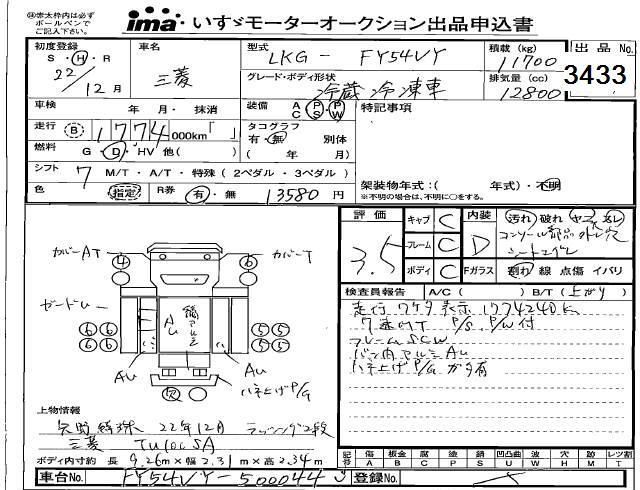 ※赤太枠内は必ず
ボールペンで
ご記入ください。
ima いすゞモーターオークション出品申込書
初度登録
S・H・R
22/12月
車名
三菱
型式
LKG- FY54VY
積載(kg)
11700
出品No.
3433
グレード・ボディ形状
冷蔵冷凍車
排気量(cc)
12800
車検 年・月・抹消
装備 A P P
C S W
特記事項
走行 B 1774 000km「 」
タコグラフ
有・無 別体
( 年 月)
燃料 G・D・HV 他( )
シフト 7 M/T・A/T・特殊(2ペダル・3ペダル)
色 指定 R券 有・無 13580 円
架装物年式:( 年式)・不明
※不明の場合は、不明に○をする。
評価
3.5
キャブ C
フレーム C
ボディ C
内装 D
汚れ 破れ
Fガラス 割れ 線 点傷 イバリ
検査員報告 A/C( ) B/T(上がり)
走行 メータ表示 1774240k
7速MT P/S. P/W付
フレームSCW
バン内アルミAu
ハネ上げP/G ガタ有
カバーAT
カバーT
4
6
ガード
6 6
6 6
5 5
5 5
Au
Au
Au
ハネ上げP/G
上物情報
矢野特殊 22年12月 ラッシング2段
三菱 TU10CSA
ボディ内寸约 長 9.26m×幅 2.31m×高 2.34m
記号 傷 A 板金 B 腐 C 塗 P 錆 S 凹凸曲 U 波 W 穴 H 欠 M レツ割 T
車台No. FY54VY-500044
登録No.